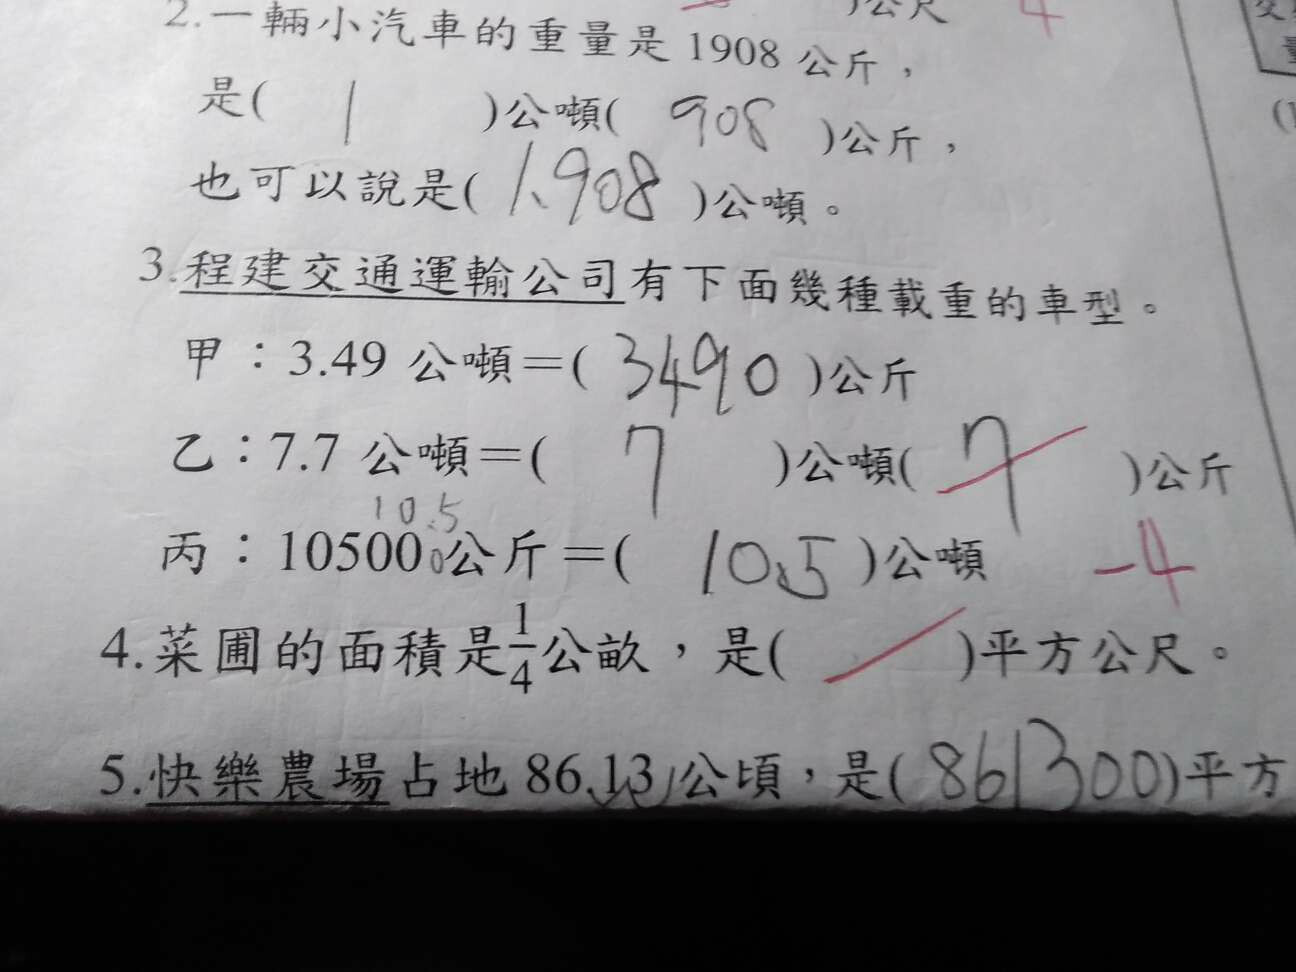 )公尺 4
2.一輛小汽車的重量是1908公斤，
是( 1 )公噸( 908 )公斤，
也可以說是( 1.908 )公噸。
3.程建交通運輸公司有下面幾種載重的車型。
甲：3.49 公噸＝( 3490 )公斤
乙：7.7 公噸＝( 7 )公噸( 7 )公斤
10.5
丙：10500公斤＝( 10.5 )公噸 -4
4.菜圃的面積是1/4公畝，是( )平方公尺。
5.快樂農場占地 86.13公頃，是( 861300 )平方